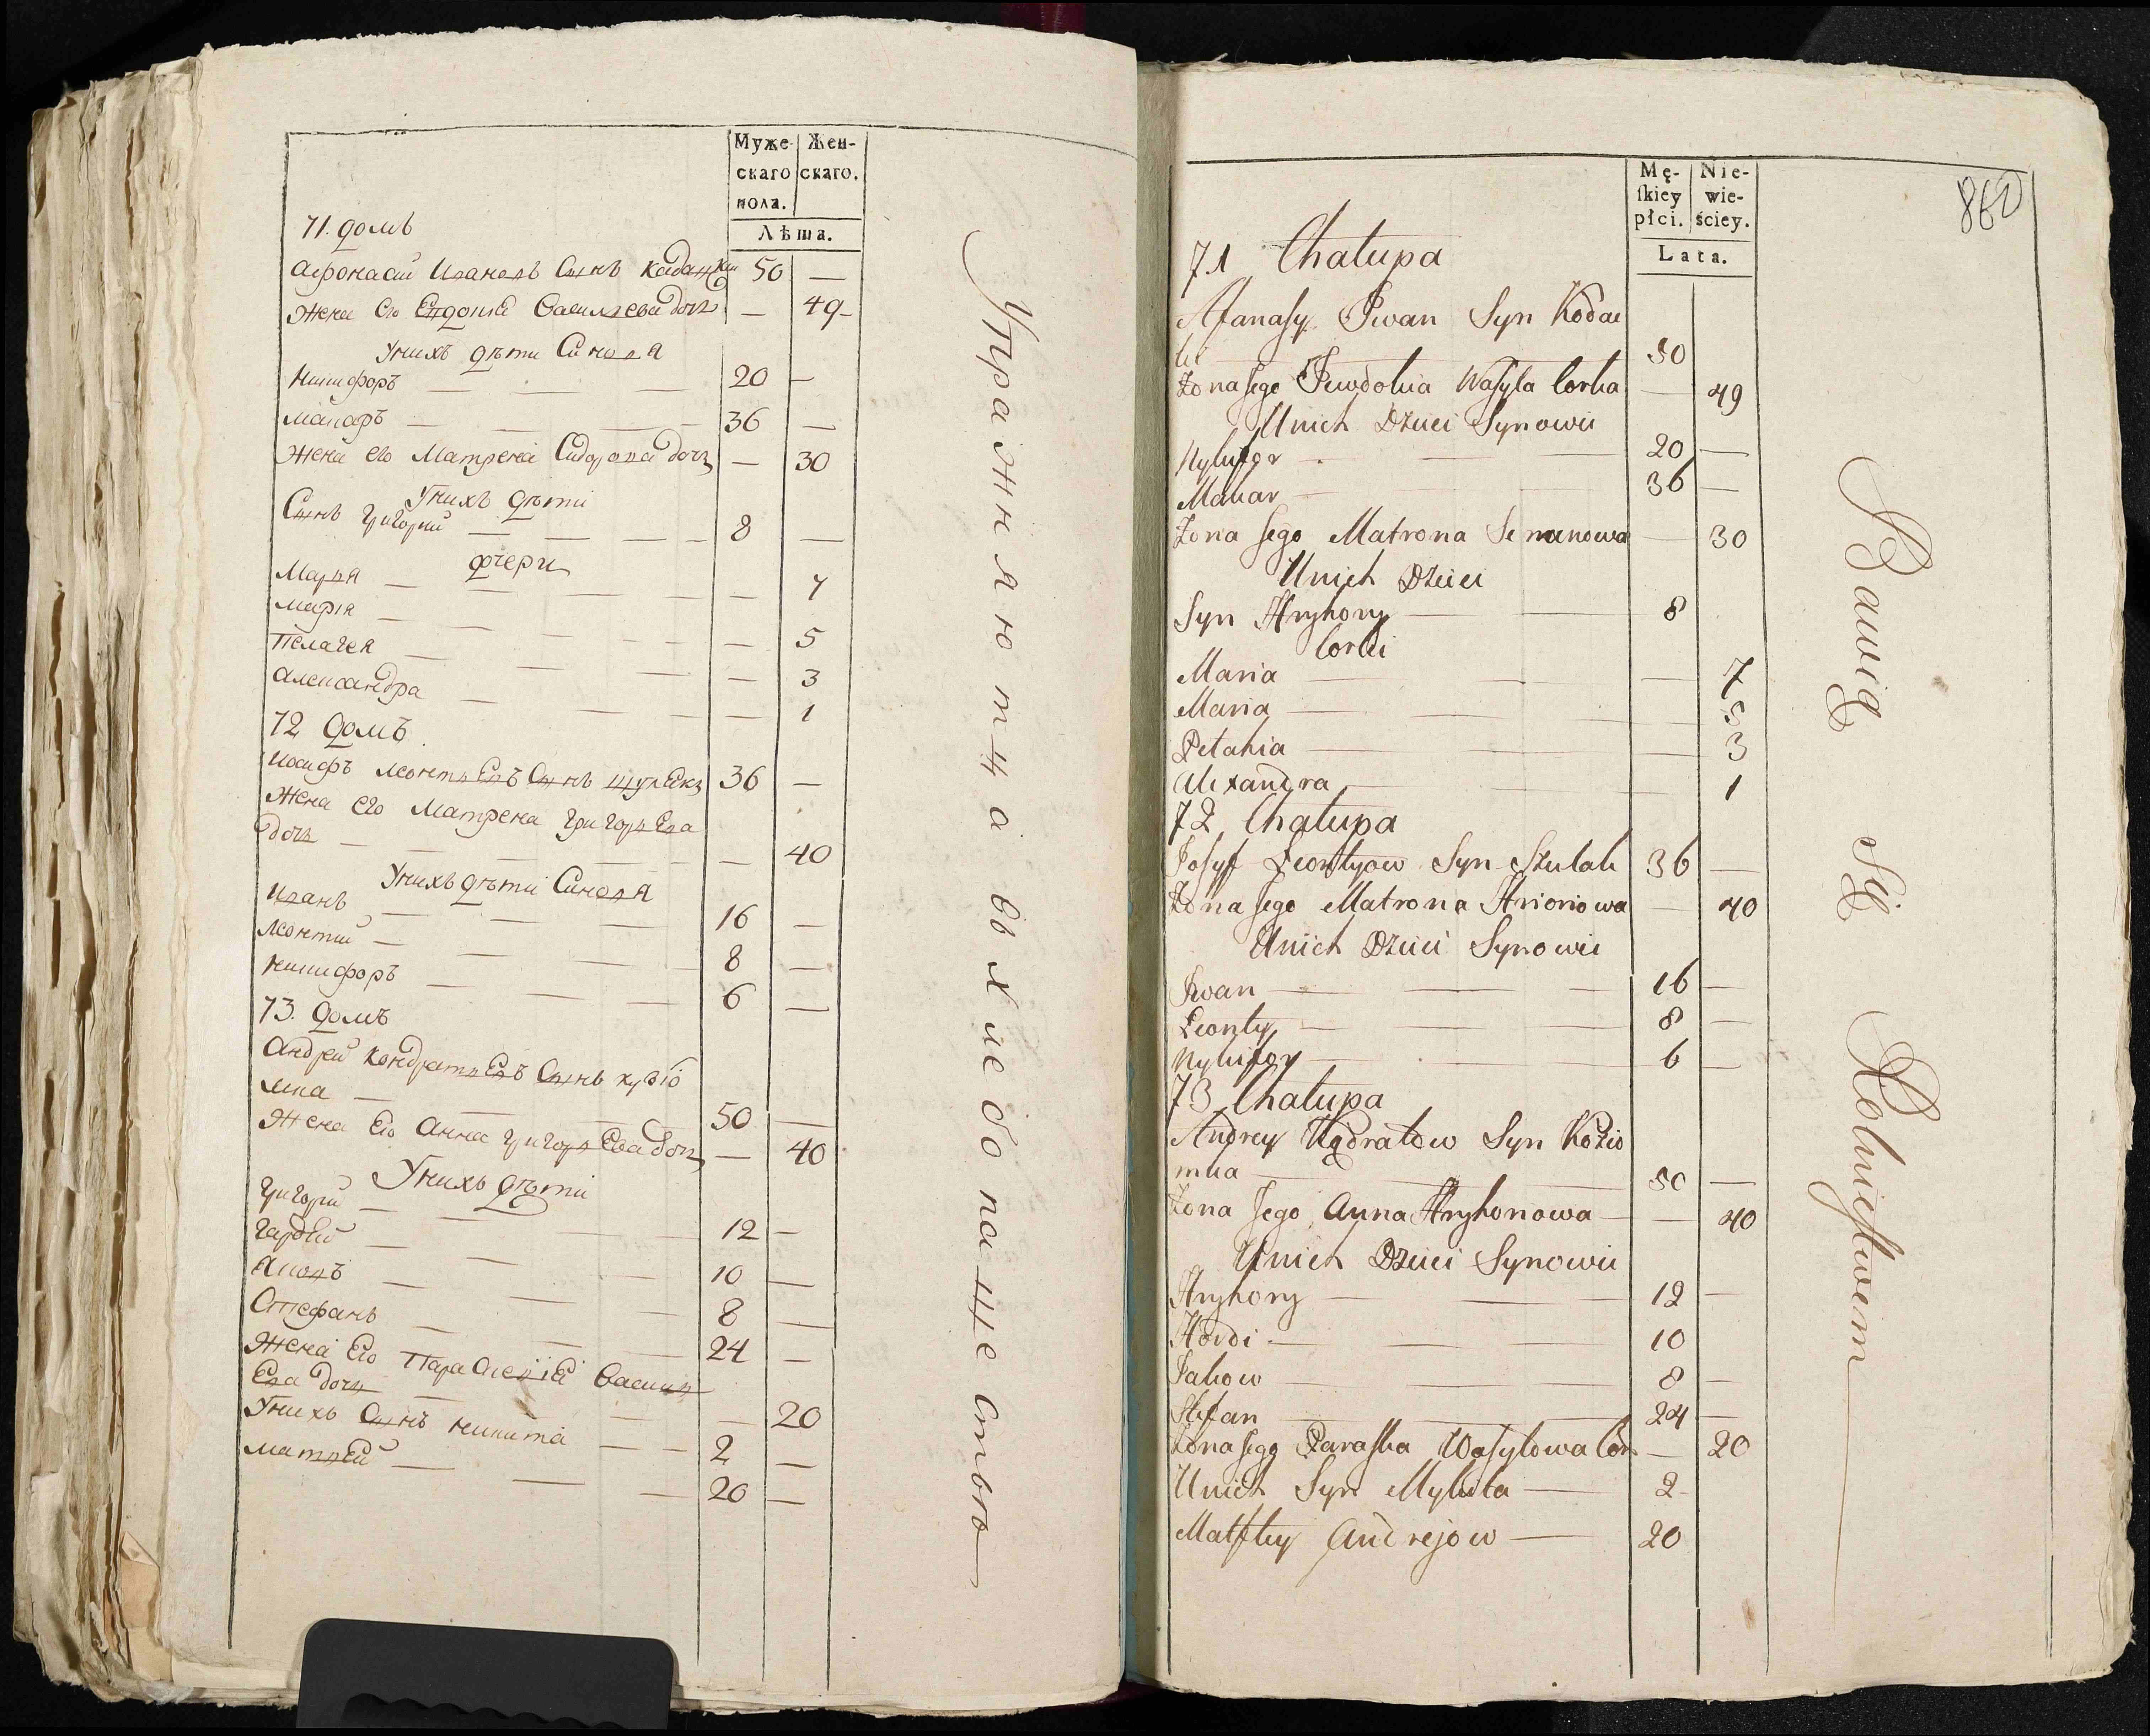 Муже-
скаго
пола.
Жен-
скаго.
Лѣта.
71. домъ
Афонасий Ивановъ Сынъ Кадацкии 50 —
Жена Его Евдокиѣ Василева дочъ — 49
Унихъ дѣти Синовя
Никифоръ — 20 —
Макаръ — 36 —
Жена его Матрена Сидорова дочъ — 30
Унихъ дѣти
Сынъ Григории — 8 —
дчери
Марья — 7
Марія — 5
Пелагея — 3
Александра — 1
72 домъ
Иосифъ Леонтьевъ Сынъ Шулекъ 36 —
Жена его Матрена Григорьева
дочъ — 40
Унихъ дѣти Синовя
Иванъ — 16 —
Леонтии — 8 —
Никифоръ — 6 —
73. домъ
Андрей Кондратьевъ Сынъ кузіо
мка — 50 —
Жена Его Анна Григорьева дочъ — 40
Унихъ дѣти
Григори — 12 —
Гардѣй — 10 —
Яковъ — 8 —
Стефанъ — 24 —
Жена Его Параскевіѣ Васил
Ева дочъ — 20
Унихъ Сынъ Никита — 2 —
Матвѣй — 20 —
Упражняютца въ хлебопашестью
Mę-
ſkiey
płci.
Nie-
wie-
ściey.
Lata.
860
71 Chałupa
Afanaſy Iwan Syn Kodac
ki 50
Żona Jego Jewdokia Waſyla Corka — 49
U nich Dzieci Synowie
Nykifor — 20 —
Makar — 36 —
Żona Jego Matrona Semanowa — 30
U nich Dzieci
Syn Hryhory — 8
Corki
Maria — 7
Maria — 5
Pelahia — 3
Alexandra — 1
72 Chałupa
Joſyf Leontyow Syn Szulak 36 —
Żona Jego Matrona Hrioriowa — 40
U nich Dzieci Synowie
Iwan — 16 —
Leonty — 8 —
Nykifor — 6 —
73 Chałupa
Andrey Kądratow Syn Kozio
mka — 50 —
Żona Jego Anna Hryhorowa — 40
U nich Dzieci Synowie
Hryhory — 12 —
Hordi — 10
Jakow — 8 —
Stefan — 24 —
Żona Jego Paraſka Waſylowa Cor — 20
U nich Syn Mykita — 2
Matfiey Andrejow — 20
Bawią Się Rolnictwem